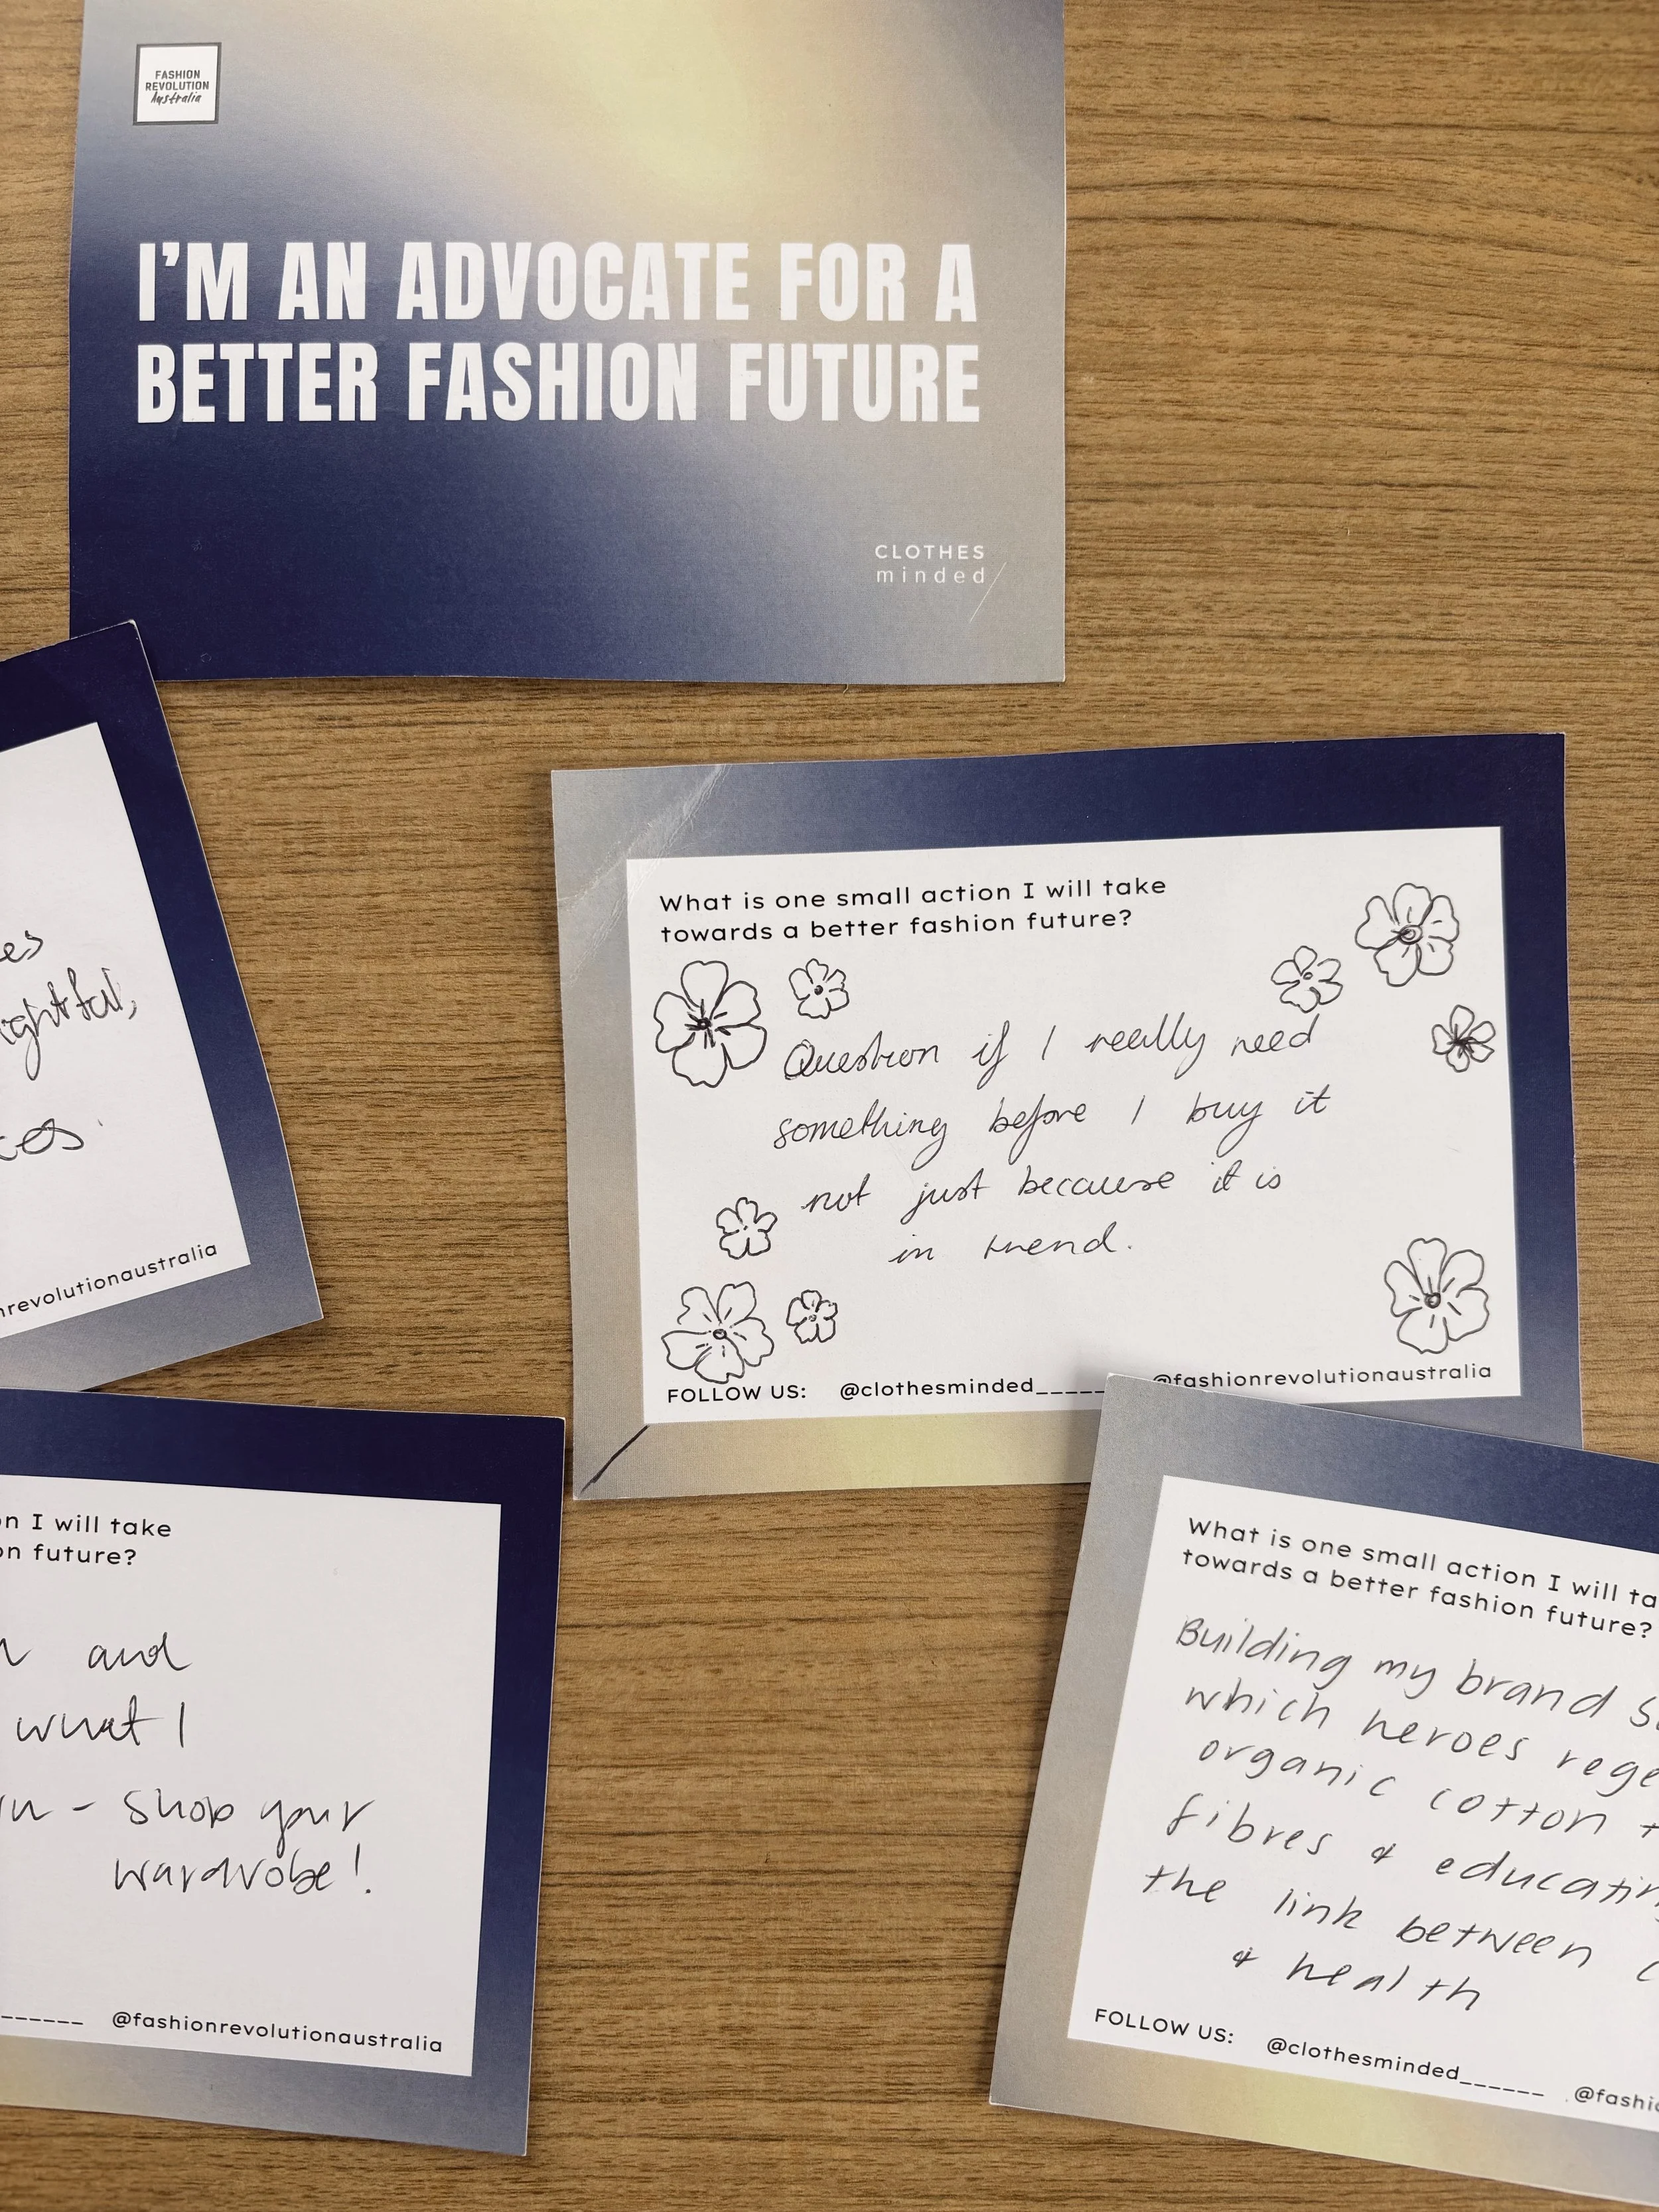 FASHION
REVOLUTION
Australia
I'M AN ADVOCATE FOR A
BETTER FASHION FUTURE
CLOTHES
minded
What is one small action I will take
towards a better fashion future?
Question if I really need
something before I buy it
not just because it is
in trend.
FOLLOW US: @clothesminded______ @fashionrevolutionaustralia
es
ightful,
nrevolutionaustralia
n I will take
on future?
and
what I
- shop your
wardrobe!
______ @fashionrevolutionaustralia
What is one small action I will ta
towards a better fashion future?
Building my brand
which heroes rege
organic cotton +
fibres & educatin
the link between
& health
FOLLOW US: @clothesminded______ @fashi